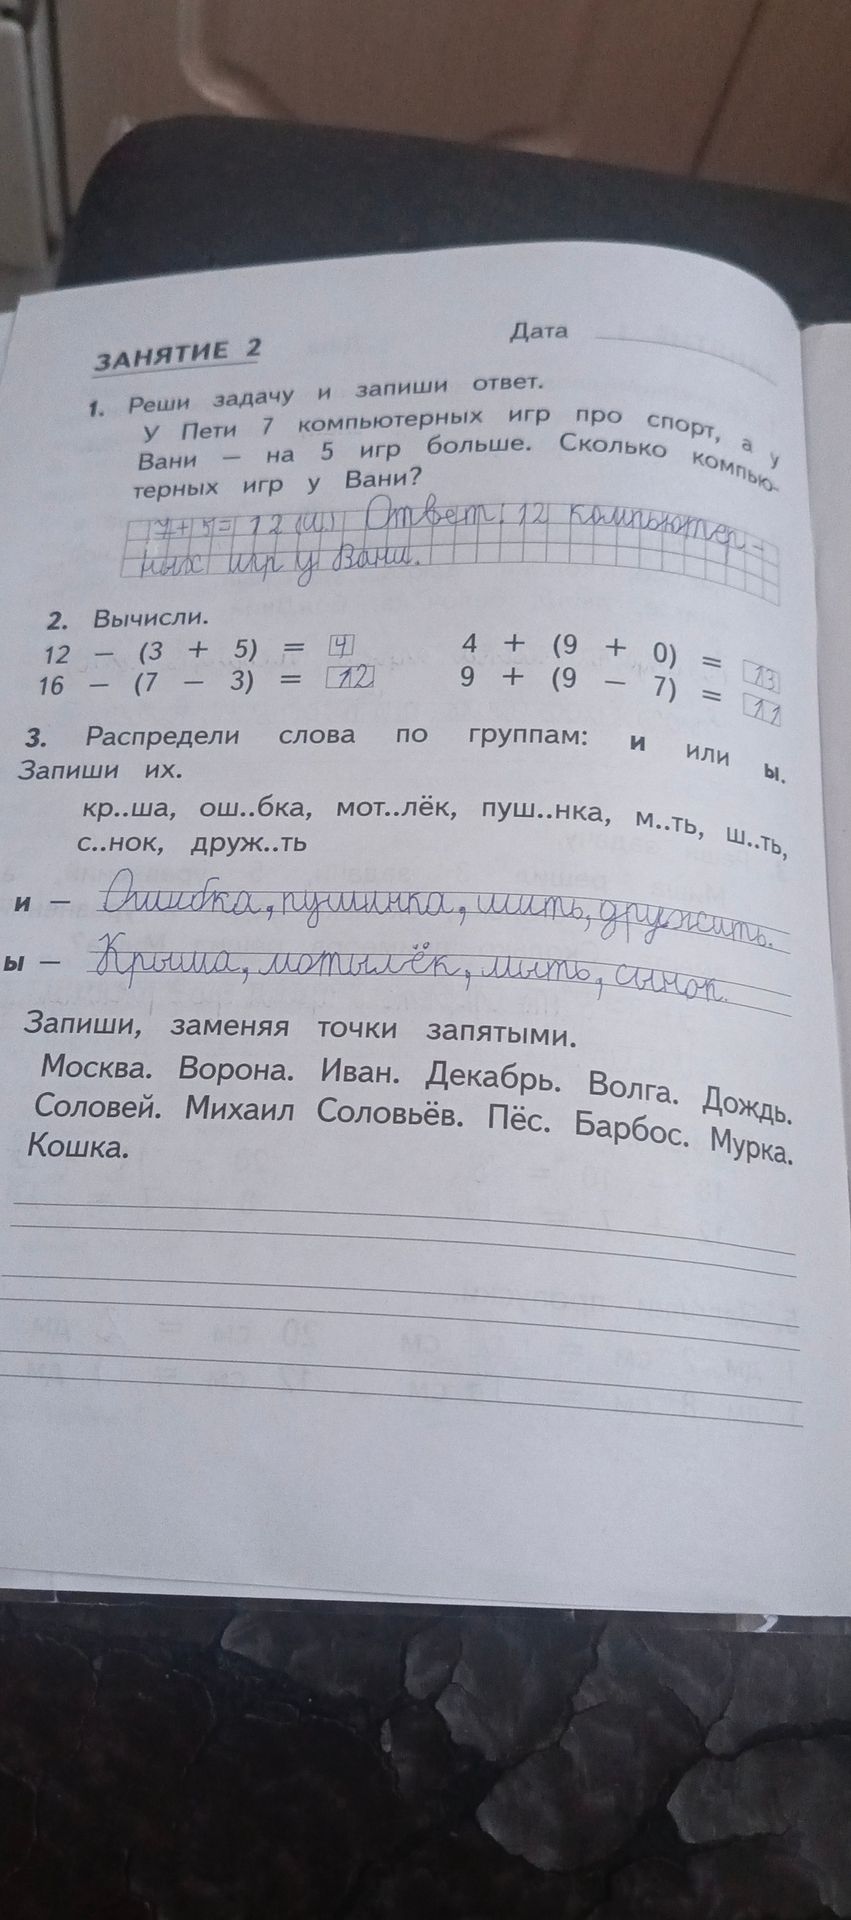 ЗАНЯТИЕ 2 Дата
1. Реши задачу и запиши ответ.
У Пети 7 компьютерных игр про спорт, а у
Вани — на 5 игр больше. Сколько компью-
терных игр у Вани?
7+5=12(и.) Ответ: 12 компьютер-
ных игр у Вани.
2. Вычисли.
12 − (3 + 5) = 4 4 + (9 + 0) = 13
16 − (7 − 3) = 12 9 + (9 − 7) = 11
3. Распредели слова по группам: и или ы.
Запиши их.
кр..ша, ош..бка, мот..лёк, пуш..нка, м..ть, ш..ть,
с..нок, друж..ть
и — Ошибка, пушинка, шить, дружить.
ы — Крыша, мотылёк, мыть, сынок.
Запиши, заменяя точки запятыми.
Москва. Ворона. Иван. Декабрь. Волга. Дождь.
Соловей. Михаил Соловьёв. Пёс. Барбос. Мурка.
Кошка.